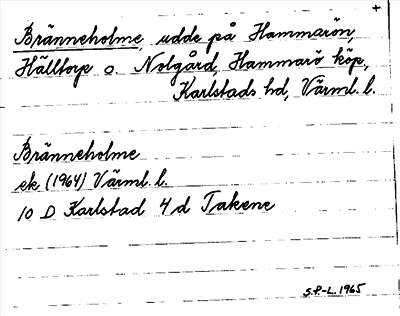 +
Bränneholme, udde på Hammarön,
Hälltorp o. Nolgård, Hammarö köp,
Karlstads hd, Värml. l.
Bränneholme
ek (1964) Värml. l.
10 D Karlstad 4d Takene
S.P.-L. 1965